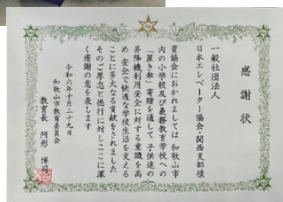 感謝状
一般社団法人
日本エレベーター協会 関西支部様
貴協会におかれましては 和歌山市
内の小学校及び義務教育学校への
「置き傘」寄贈を通して 子供達の
昇降機利用安全に対する意識を高
め 安全で快適な学校生活を支える
ことに多大なる貢献をされました
そのご厚志と徳行に対しここに深
く感謝の意を表します
令和六年十月二十九日
和歌山市教育委員会
教育長 阿形 博司